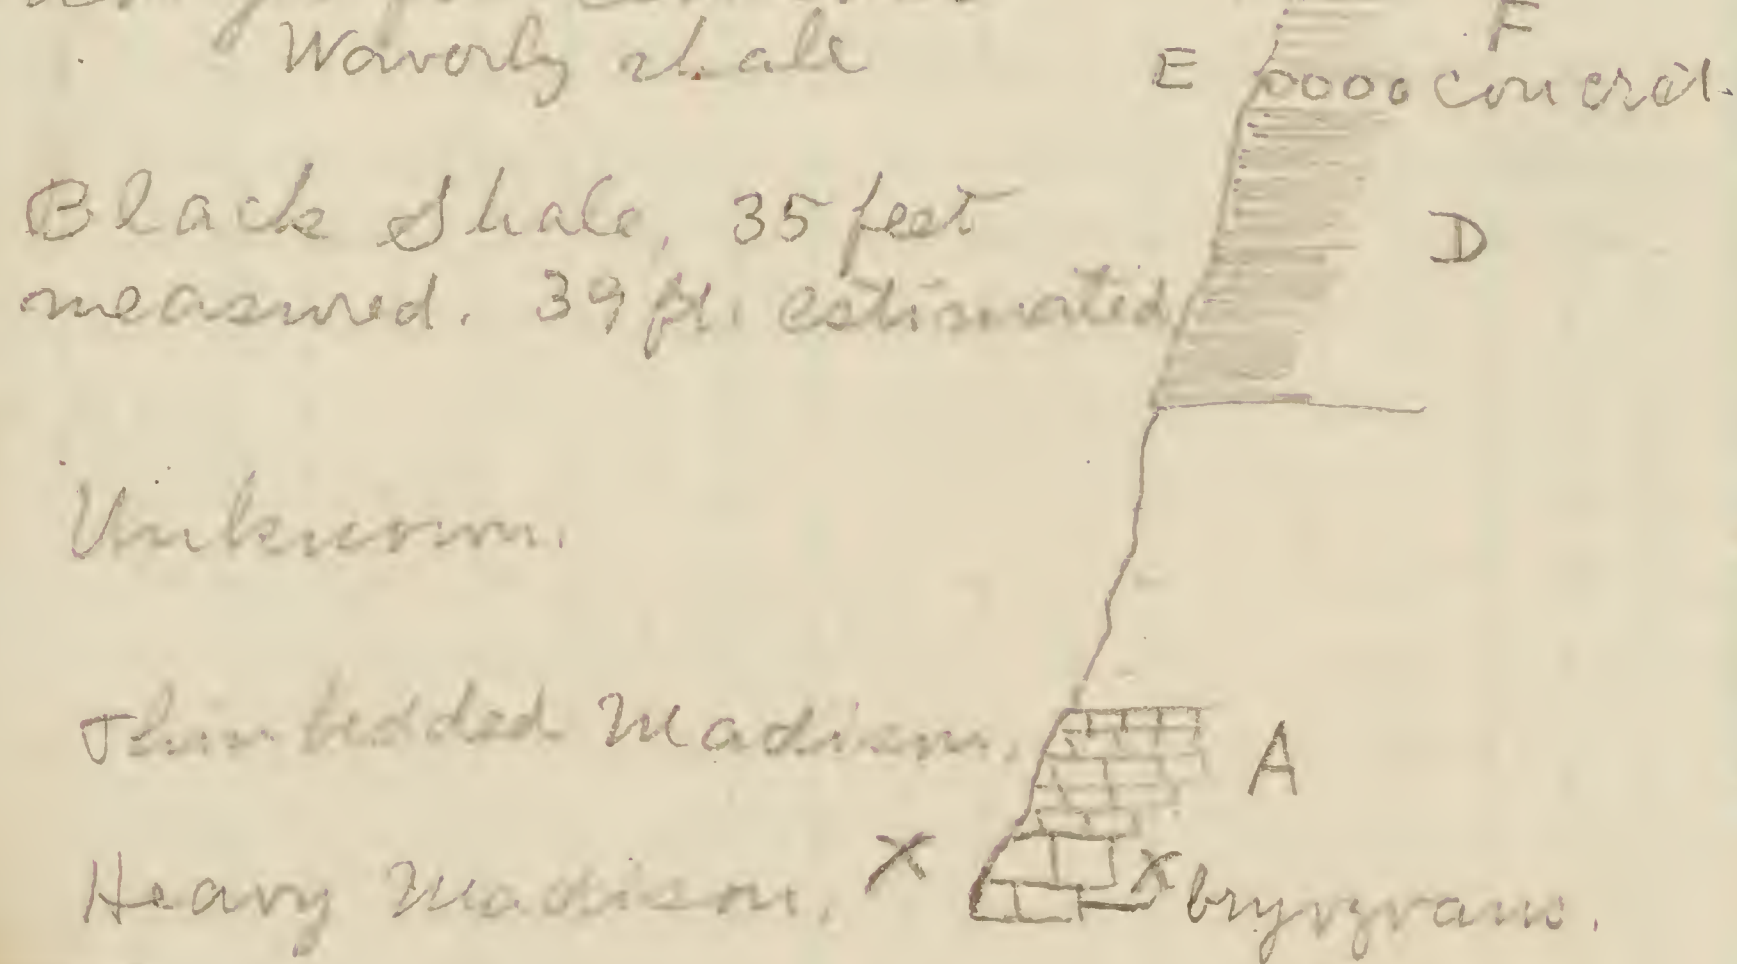 Waverly shale
E F
0000 concret.
Black Shale, 35 feet
measured. 39 ft. estimated
D
Unknown.
Thin bedded Madison.
A
Heavy Madison. X
X bryozoans.